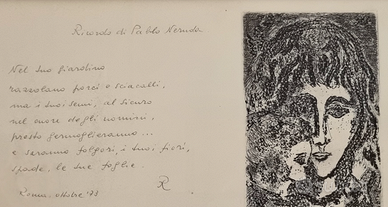 Ricordo di Pablo Neruda
Nel suo giardino
razzolano porci e sciacalli,
ma i suoi semi, al sicuro
nel cuore degli uomini,
presto germoglieranno...
e saranno folgori, i suoi fiori,
spade, le sue foglie.
R
Roma, ottobre '73